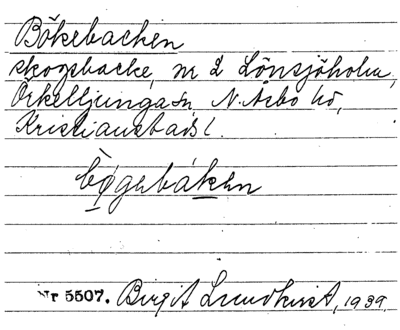 Bökebacken
skogsbacke, nr 2 Lönsjöholm,
Örkelljunga sn, N. Åsbo hd,
Kristianstads l.
bø̀gebáken
Nr 5507. Birgit Lundkvist, 1939.